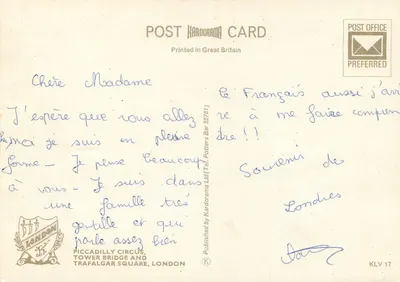 POST KARDORAMA CARD
Printed in Great Britain
POST OFFICE
PREFERRED
Chère Madame
J'espère que vous allez
moi je suis en pleine
forme - Je pense beaucoup
à vous - Je suis dans
une famille très
gentille et qui
parle assez bien
le Français aussi j'arri
ve à me faire compren
dre !!
Souvenir de
Londres
Published by Kardorama Ltd (Tel. Potters Bar 52781)
LONDON
PICCADILLY CIRCUS,
TOWER BRIDGE AND
TRAFALGAR SQUARE, LONDON
K
KLV 17